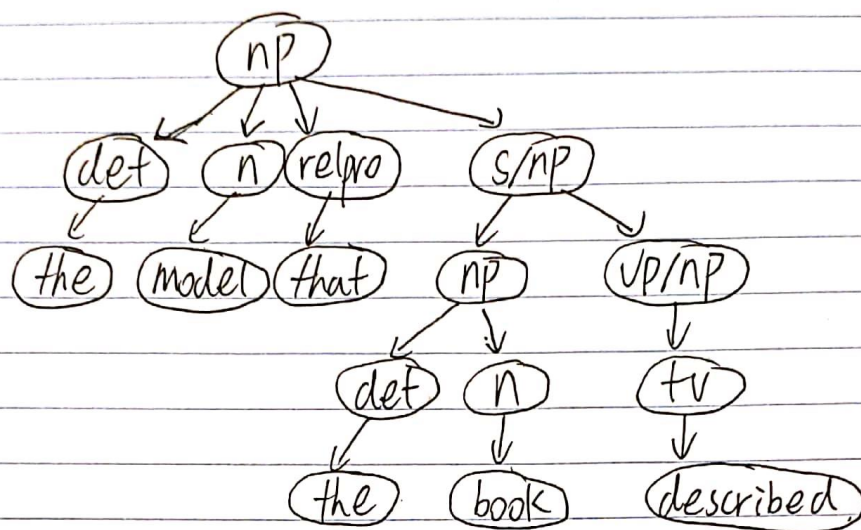 np
det n relpro s/np
the model that np vp/np
det n tv
the book described